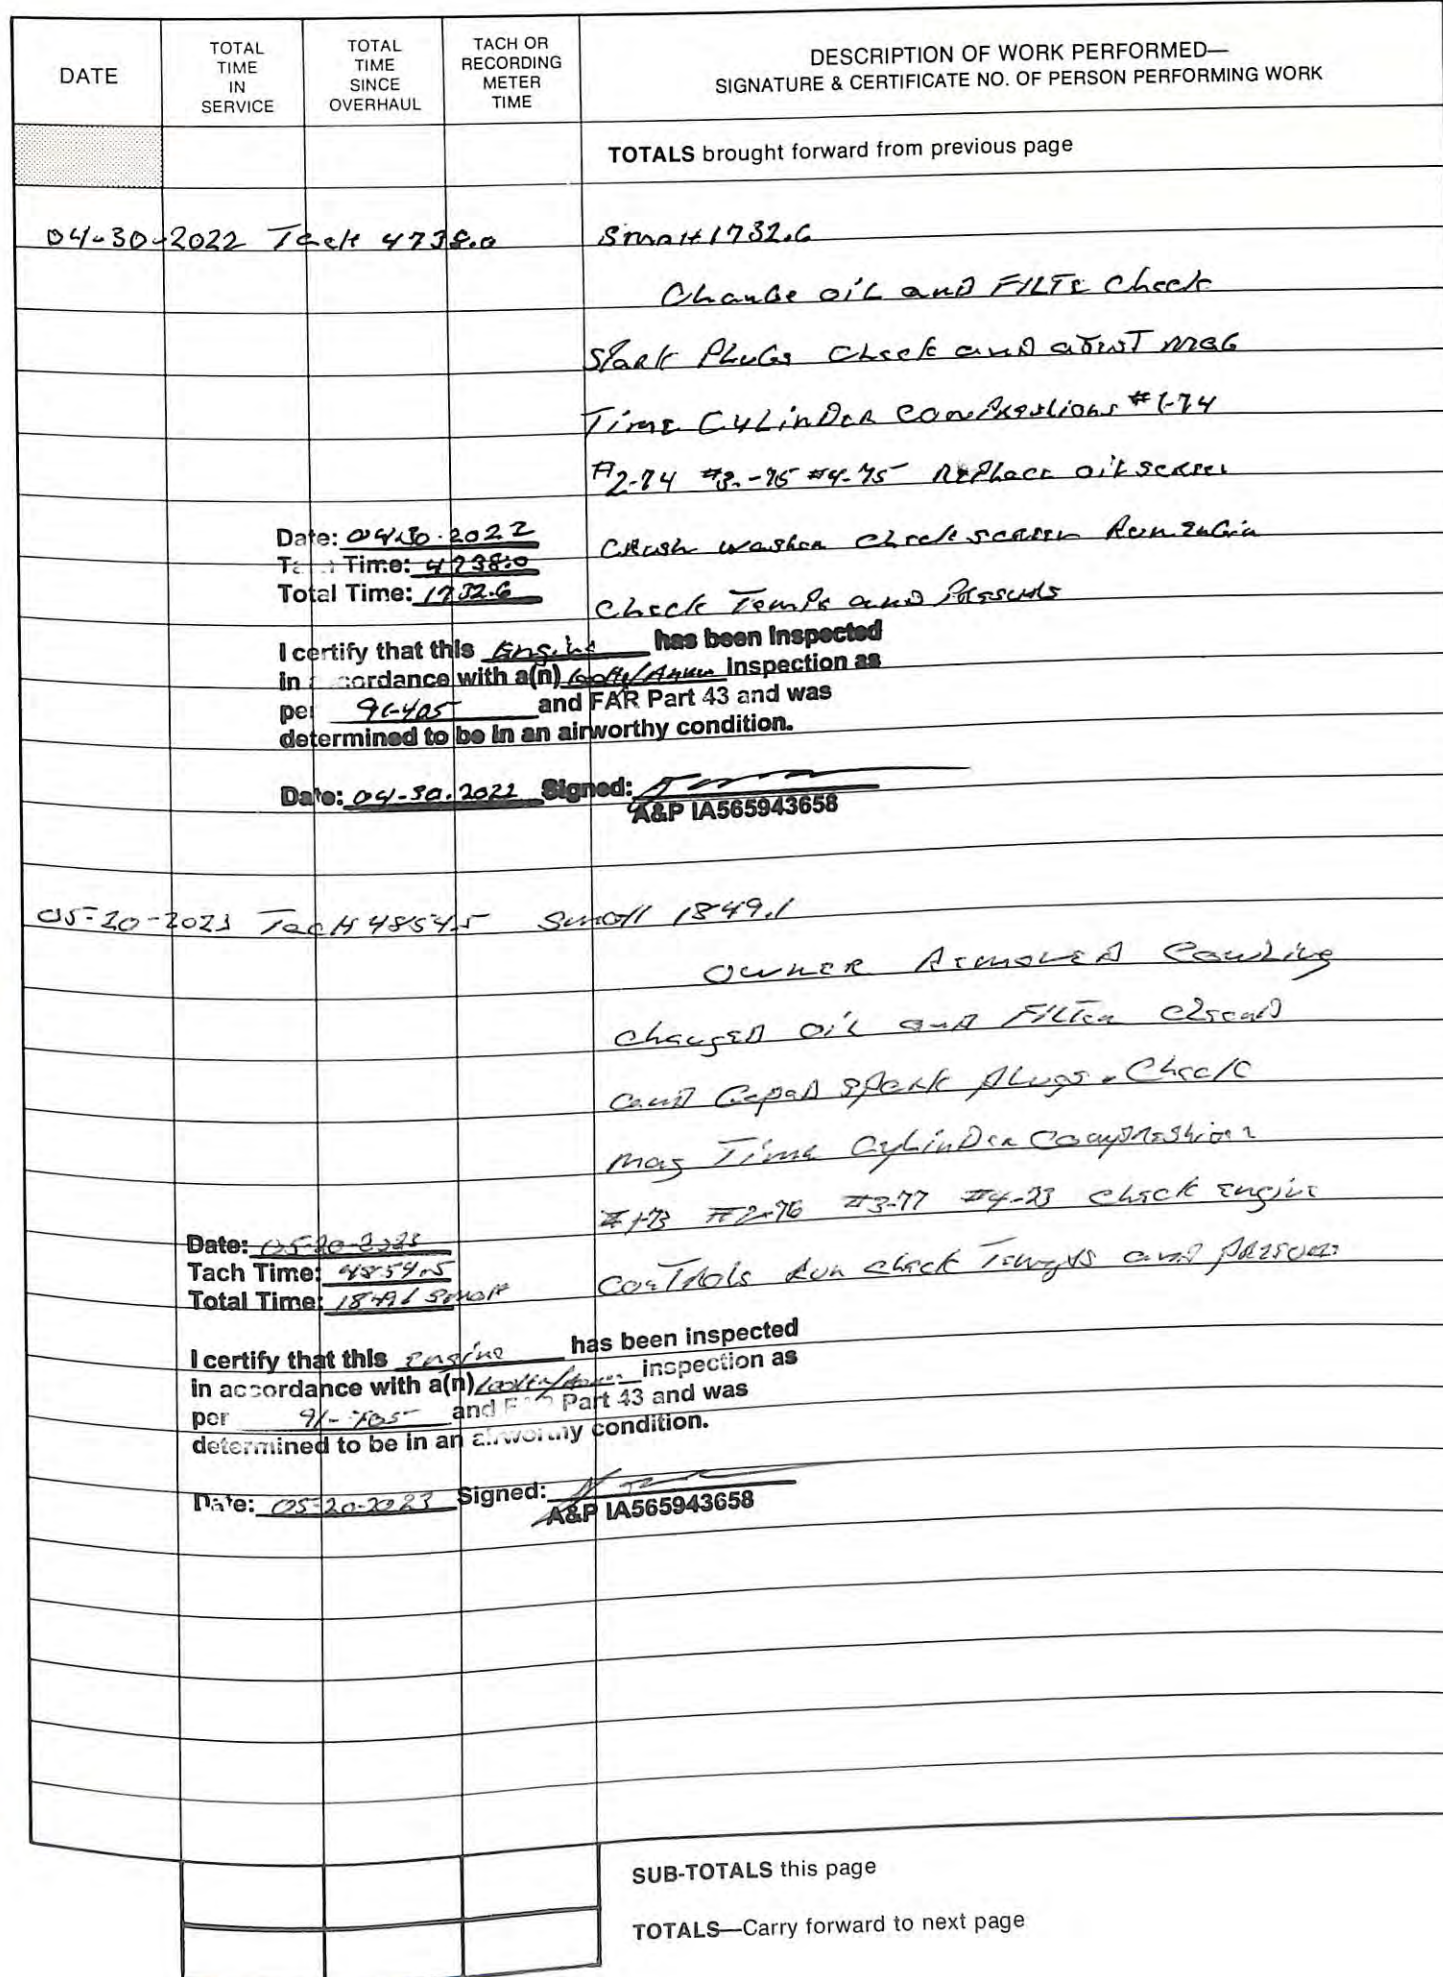 DATE
TOTAL TIME IN SERVICE
TOTAL TIME SINCE OVERHAUL
TACH OR RECORDING METER TIME
DESCRIPTION OF WORK PERFORMED—
SIGNATURE & CERTIFICATE NO. OF PERSON PERFORMING WORK
TOTALS brought forward from previous page
04-30-2022 Tach 4738.0 SmoH 1732.6
Change oil and FILTE Check
Spark Plugs Check and mag
Time CyLinDer Compressions #1-74
#2-74 #3-75 #4-75 Replace oil screen
Crush washer check screen Run
Check Temps and
Date: 04-30-2022
Time: 4738.0
Total Time: 1732.6
I certify that this Engine has been inspected
in accordance with a(n) inspection as
per 91-405 and FAR Part 43 and was
determined to be in an airworthy condition.
Date: 04-30-2022 Signed:
A&P IA565943658
05-20-2023 Tach 4854.5 SmoH 1849.1
OWNER RemoveD Cowling
changeD oil and FILTer
and GapeD spark plugs. Check
mag Time CyLinDer
#1-73 #2-76 #3-77 #4-73 check engine
conTrols Run check Temps and
Date: 05-20-2023
Tach Time: 4854.5
Total Time: 1849.1 SmoH
I certify that this engine has been inspected
in accordance with a(n) inspection as
per 91-405 and Part 43 and was
determined to be in an airworthy condition.
Date: 05-20-2023 Signed:
A&P IA565943658
SUB-TOTALS this page
TOTALS—Carry forward to next page